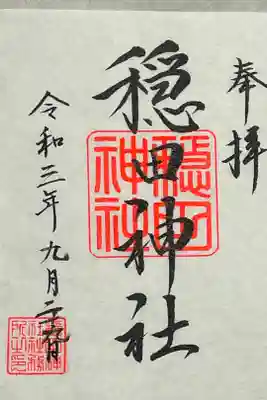 奉拝
穏田神社
令和三年九月二十九日
穏田
神社